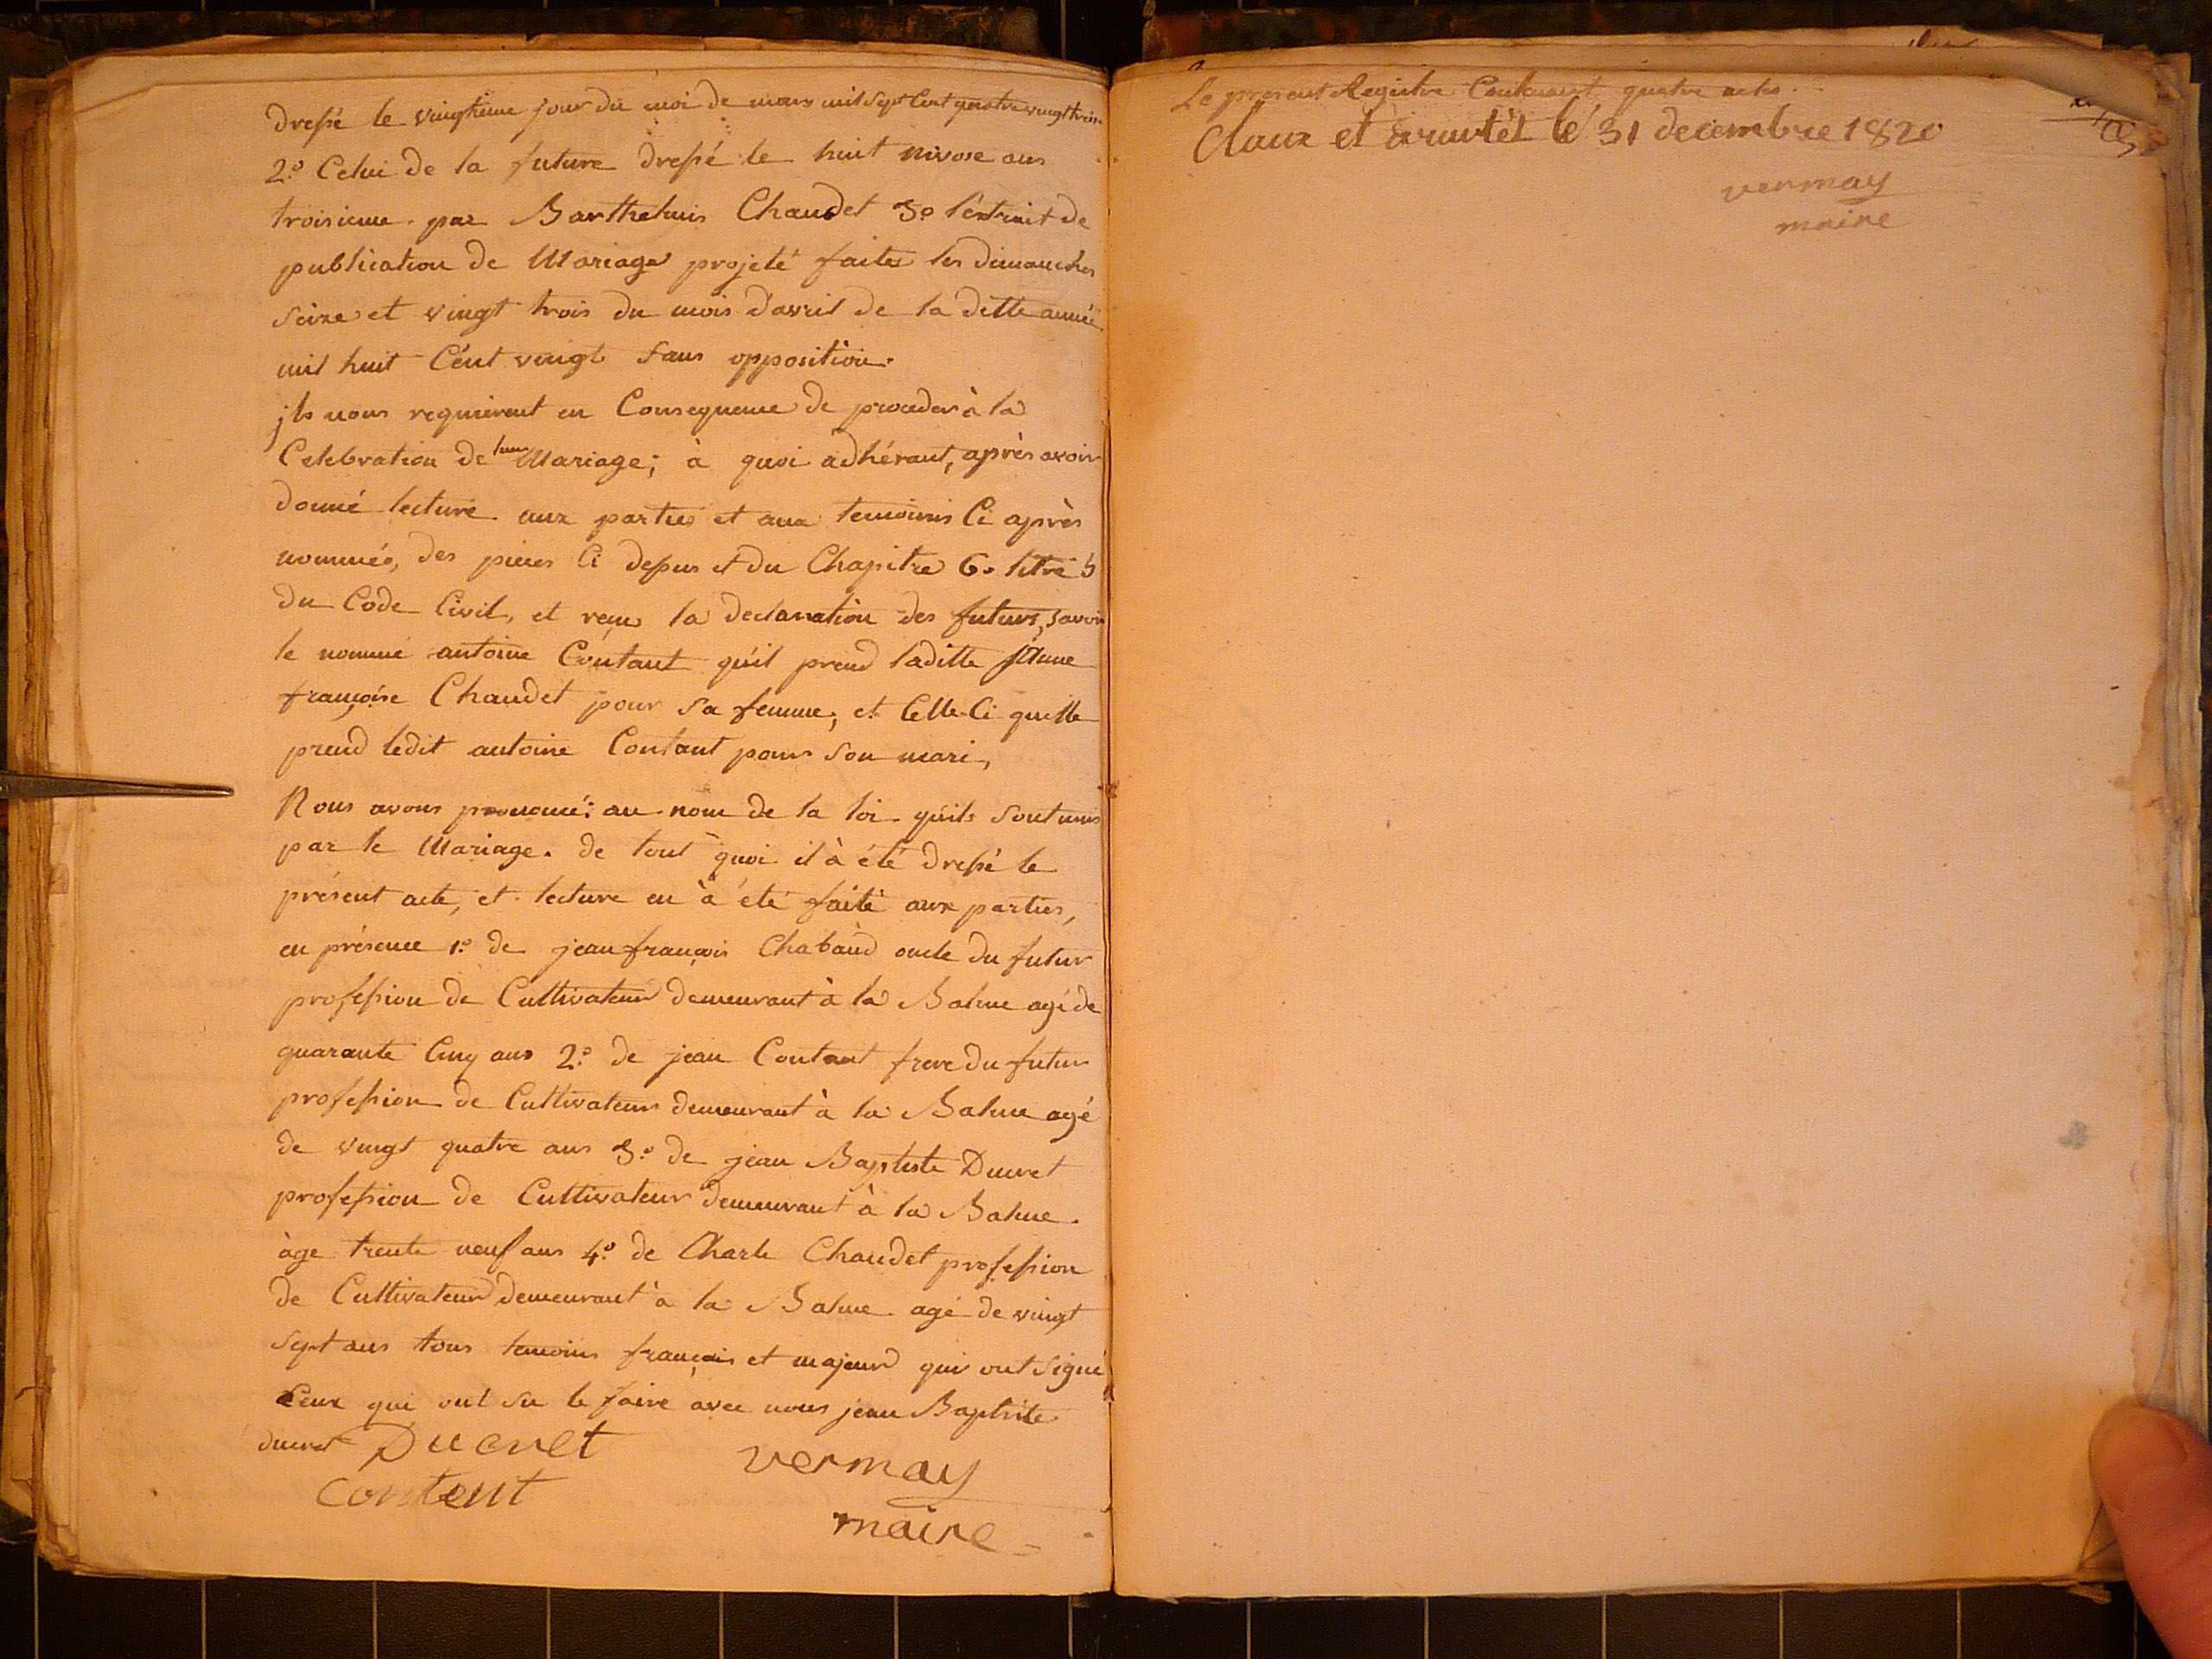 dressé le vingtieme jour du moi de mars mil sept Cent quatre vingt trois
2.o Celui de la future dressé le huit nivose ans
troisieme. par Barthelmis Chaudet 3o l'extrait de
publication de Mariage projeté faites les dimanches
seize et vingt trois du mois d'avril de la ditte année
mil huit Cent vingt sans opposition.
jls nous requierent en Consequence de proceder à la
Celebration de leur Mariage; à quoi adhérant, après avoir
donné lecture aux parties et aux temoins Ci après
nommés, des pieces Ci dessus et du Chapitre 6. titre 5
du Code Civil, et reçu la declaration des futurs, savoir
le nommé antoine Contant qu'il prend laditte
françoise Chaudet pour sa femme; et Celle-Ci quelle
prend ledit antoine Contant pour son mari,
Nous avons prononcé: au nom de la loi qu'ils sont unis
par le Mariage. de tout quoi il à été dressé le
présent acte, et lecture en à été faite aux parties,
en présence 1.o de jean françois Chabaud oncle du futur
profession de Cultivateur demeurant à la Balme agé de
quarante Cinq ans 2.o de jean Contant frere du futur
profession de Cultivateur demeurant à la Balme agé
de vingt quatre ans 3.o de jean Baptiste Ducret
profession de Cultivateur demeurant à la Balme.
àge trente neuf ans 4.o de Charle Chaudet profession
de Cultivateur demeurant à la Balme agé de vingt
sept ans tous temoins français et majeurs qui ont signé
Ceux qui ont su le faire avec nous jean Baptiste
ducret Ducret
vermay
Content
maire
Le present Registre Contenant quatre actes.
Claux et arrurtér le 31 decembre 1820
vermay
maire